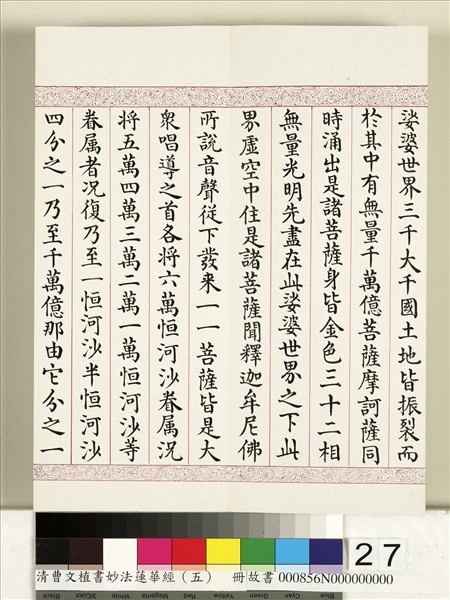 娑婆世界三千大千國土地皆振裂而
於其中有無量千萬億菩薩摩訶薩同
時涌出是諸菩薩身皆金色三十二相
無量光明先盡在此娑婆世界之下此
界虛空中住是諸菩薩聞釋迦牟尼佛
所說音聲從下發来一一菩薩皆是大
衆唱導之首各將六萬恒河沙眷属況
將五萬四萬三萬二萬一萬恒河沙等
眷属者况復乃至一恒河沙半恒河沙
四分之一乃至千萬億那由它分之一
27
清曹文植書妙法蓮華經（五） 冊故書 000856N000000000
Black 3/Color White Magenta Red Yellow Green Cyan Blue